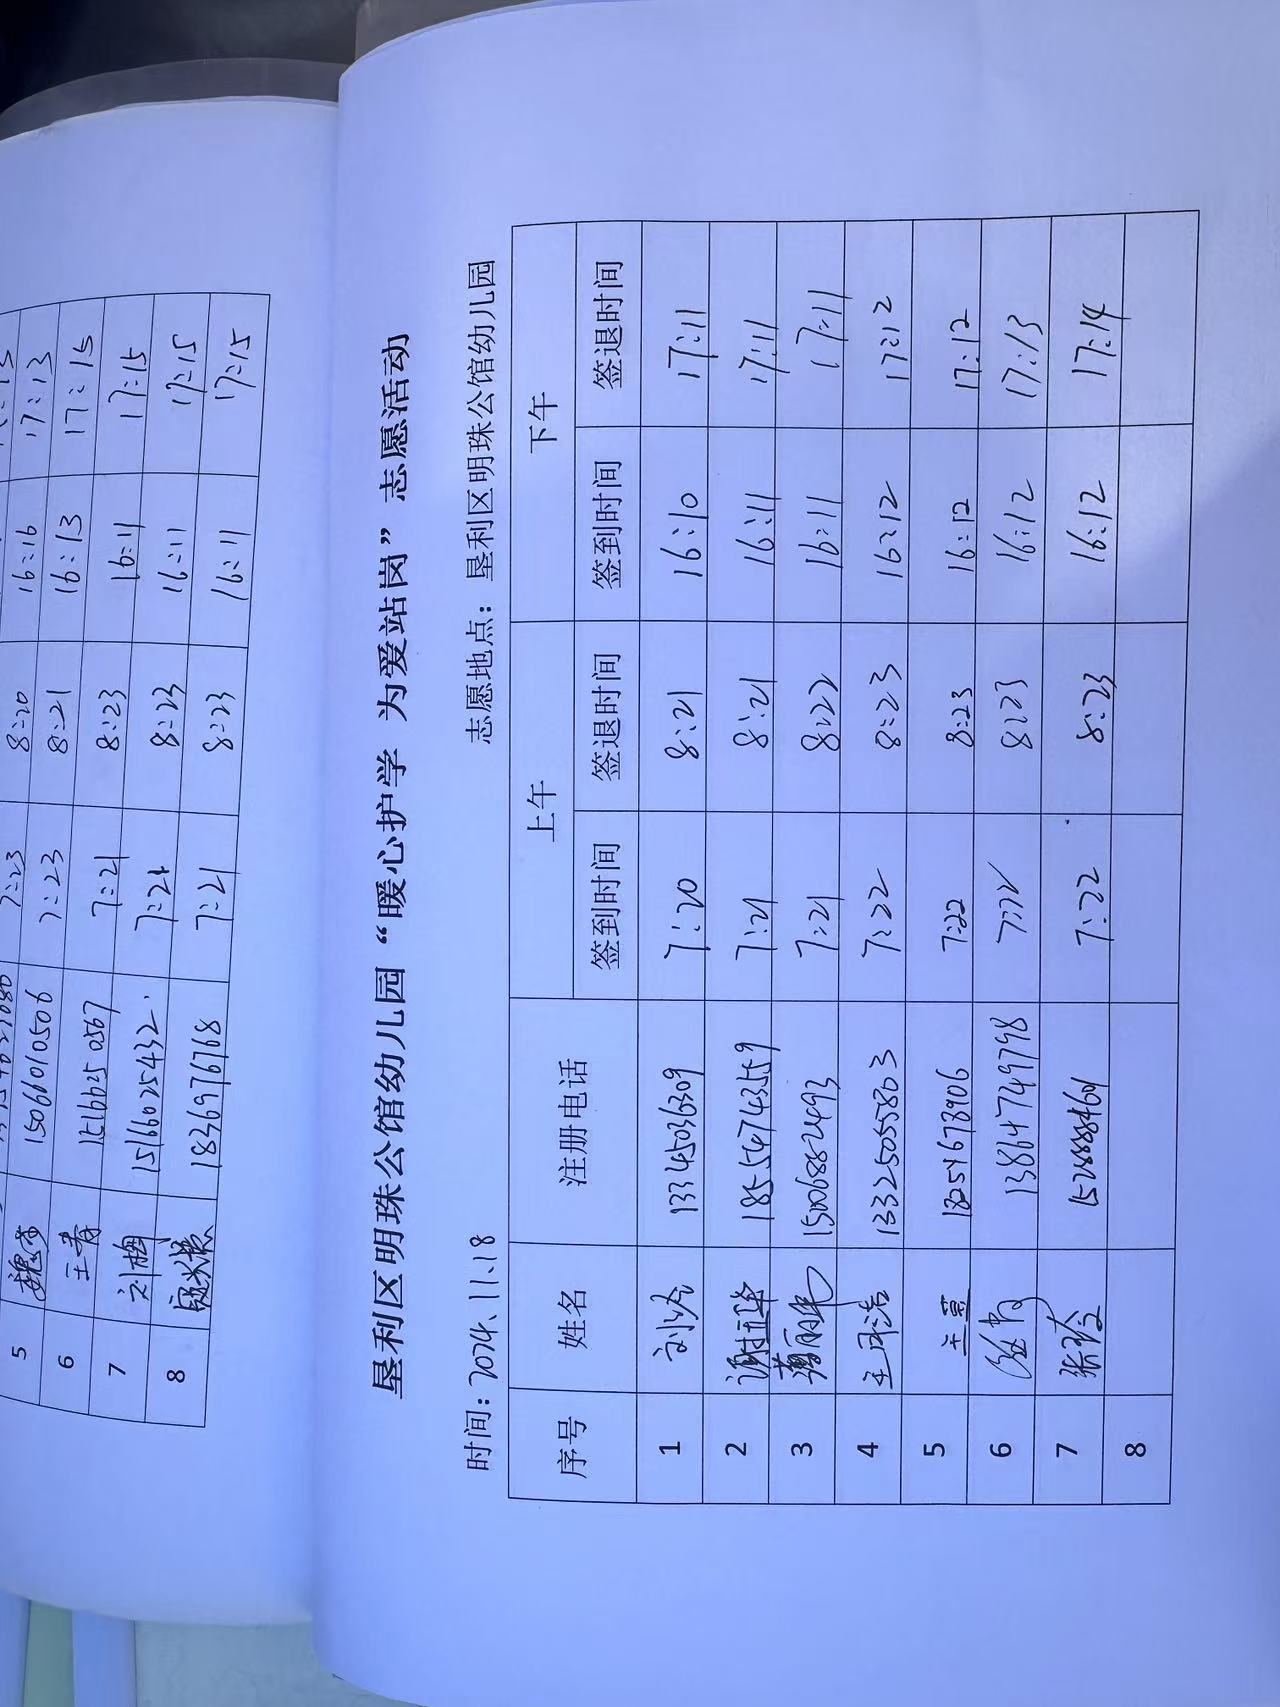 17:13
5 15066010506 7:23 8:20 16:16 17:13
6 王青 15166250567 7:23 8:21 16:13 17:15
7 刘梅 15166025432 7:21 8:23 16:11 17:15
8 1836976768 7:21 8:23 16:11 17:15
7:21 8:23 16:11 17:15
垦利区明珠公馆幼儿园“暖心护学 为爱站岗”志愿活动
时间：2024、11、18 志愿地点：垦利区明珠公馆幼儿园
序号 姓名 注册电话 上午 下午
签到时间 签退时间 签到时间 签退时间
1 13345036309 7:20 8:21 16:10 17:11
2 18554743559 7:21 8:21 16:11 17:11
3 15006882493 7:21 8:22 16:11 17:11
4 13325055803 7:22 8:23 16:12 17:12
5 18254678906 7:22 8:23 16:12 17:12
6 13864749798 7:22 8:23 16:12 17:13
7 7:22 8:23 16:12 17:14
8